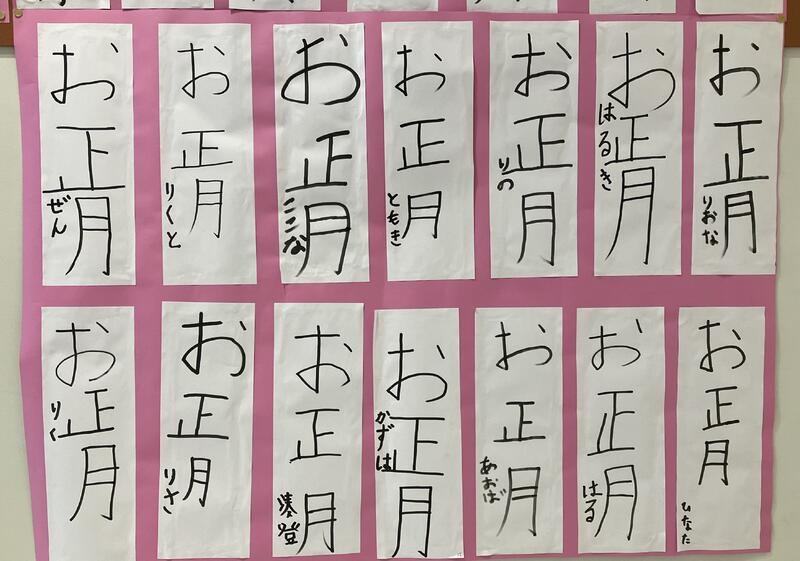 お正月
ぜん
お正月
りくと
お正月
ここな
お正月
ともき
お正月
りの
お正月
はるき
お正月
りおな
お正月
りく
お正月
りさ
お正月
湊登
お正月
かずは
お正月
あおば
お正月
はる
お正月
ひなた